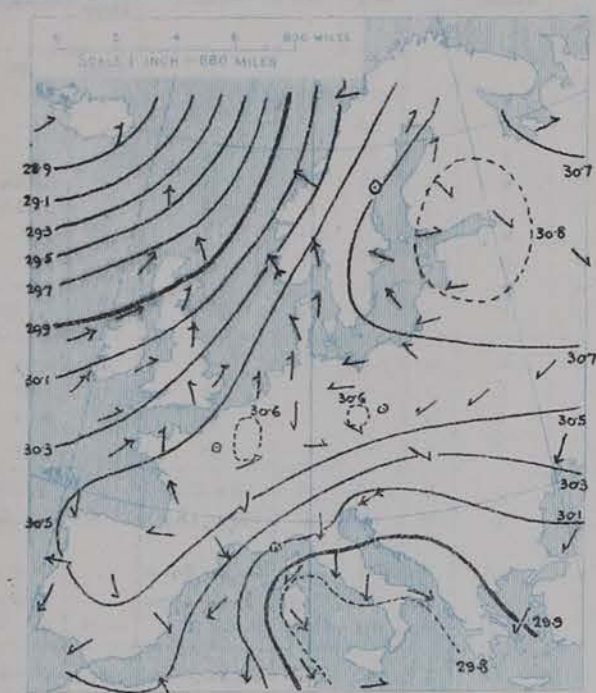 0 2 4 6 800 MILES
SCALE 1 INCH = 680 MILES
28.9
29.1
29.3
29.5
29.7
29.9
30.1
30.3
30.5
30.7
30.8
30.7
30.6
30.6
30.5
30.3
30.1
29.9
29.8